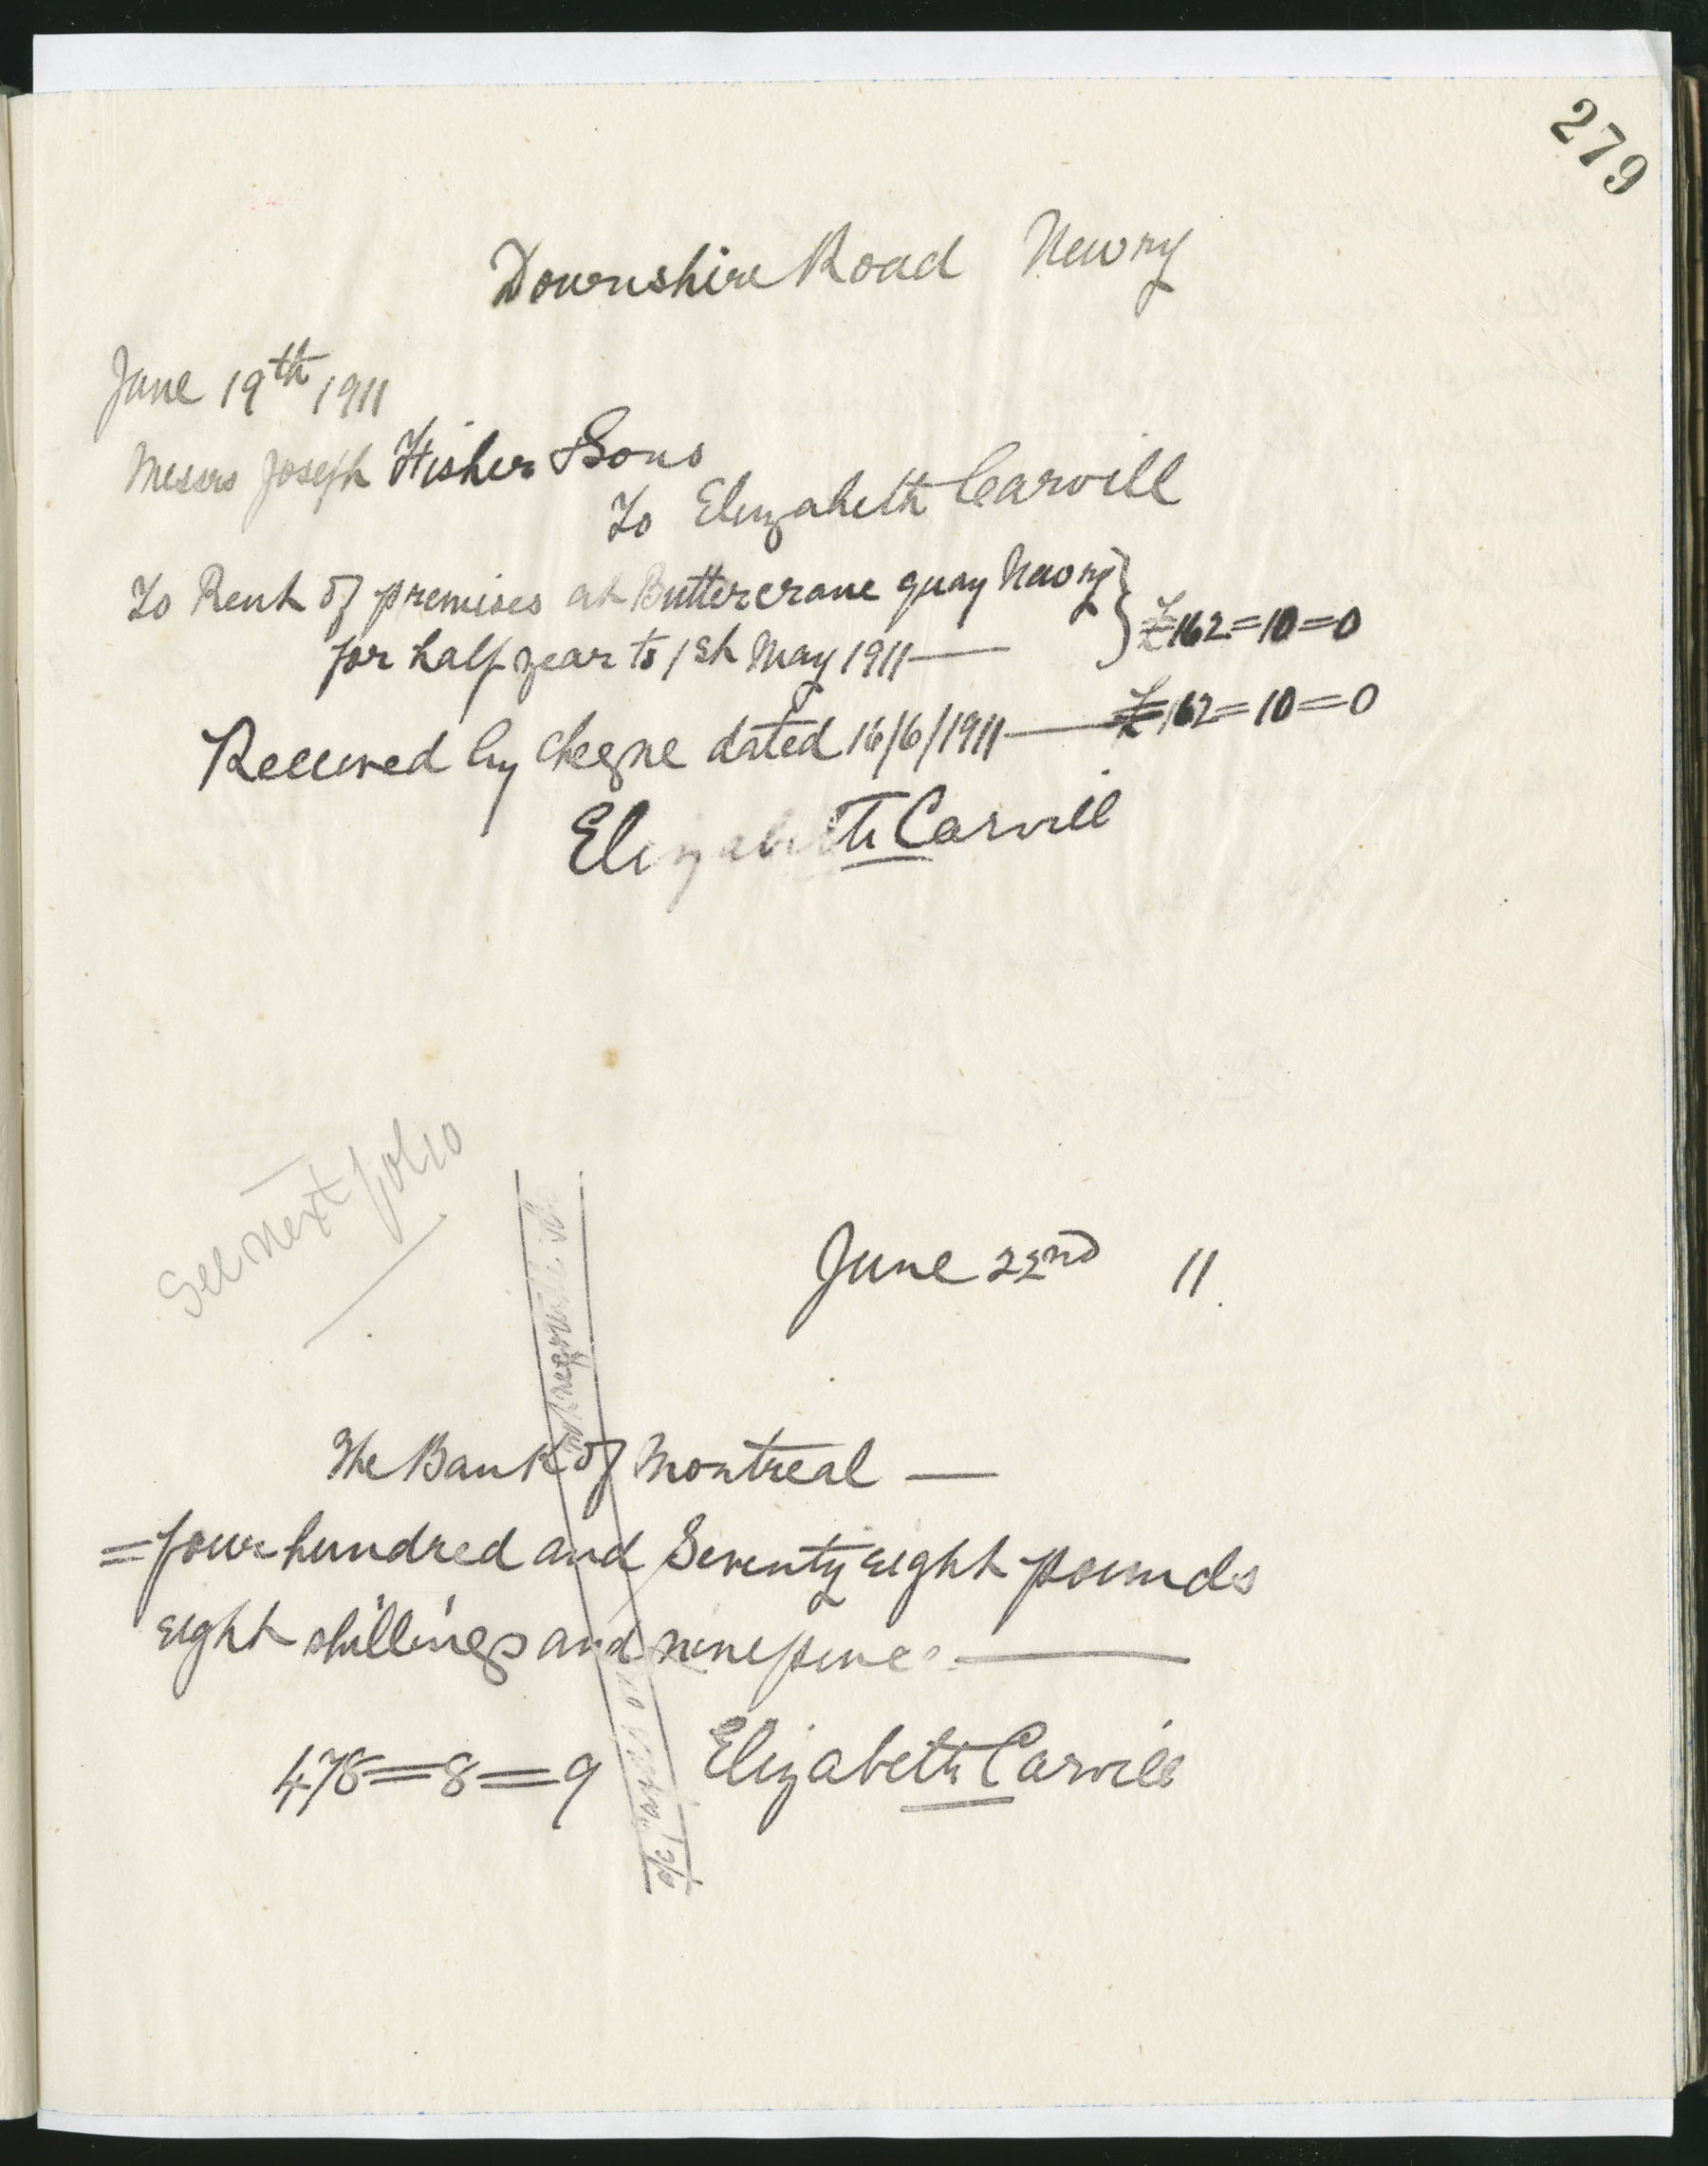 279
Downshire Road Newry
June 19th 1911
Messrs Joseph Fisher & Sons
To Elizabeth Carvill
To Rent of premises at Buttercrane quay Newry
for half year to 1st May 1911 — £162=10=0
Received by Cheqne dated 16/6/1911 — £162=10=0
Elizabeth Carvill
See next folio
June 22nd 11.
The Bank of Montreal —
=four hundred and Seventy eight pounds
eight shillings and ninepence —
478=8=9 Elizabeth Carvill
a/c Payee's only
not negotiable